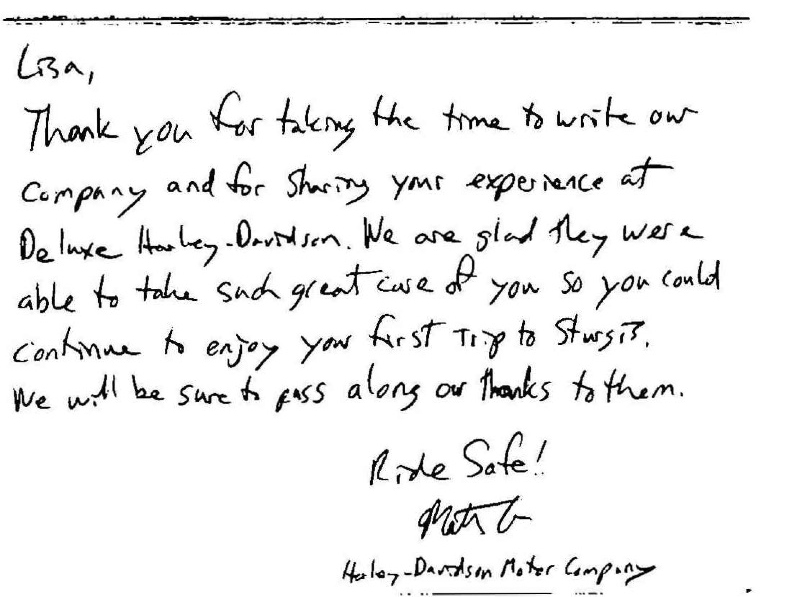 Lisa,
Thank you for taking the time to write our
Company and for sharing your experience at
Deluxe Harley-Davidson. We are glad they were
able to take such great care of you so you could
continue to enjoy your first Trip to Sturgis.
We will be sure to pass along our thanks to them.
Ride Safe!
Harley-Davidson Motor Company